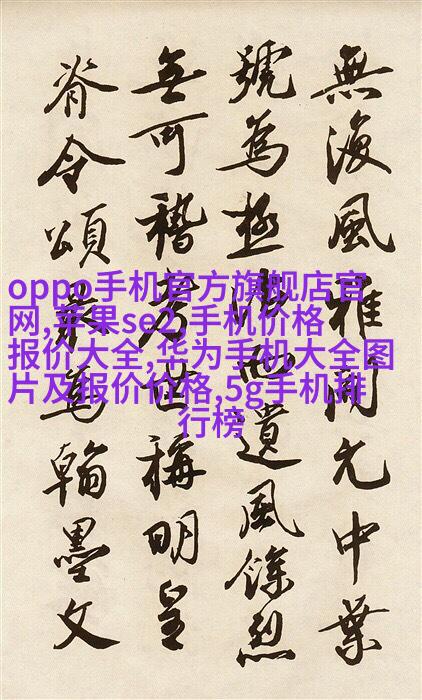 oppo手机官方旗舰店官
网,苹果se2,手机价格
报价大全,华为手机大全图
片及报价价格,5g手机排
行榜
無復風雅開元中葉
號為極遺風餘烈
無可稽考世稱明皇
脊令頌最為翰墨文